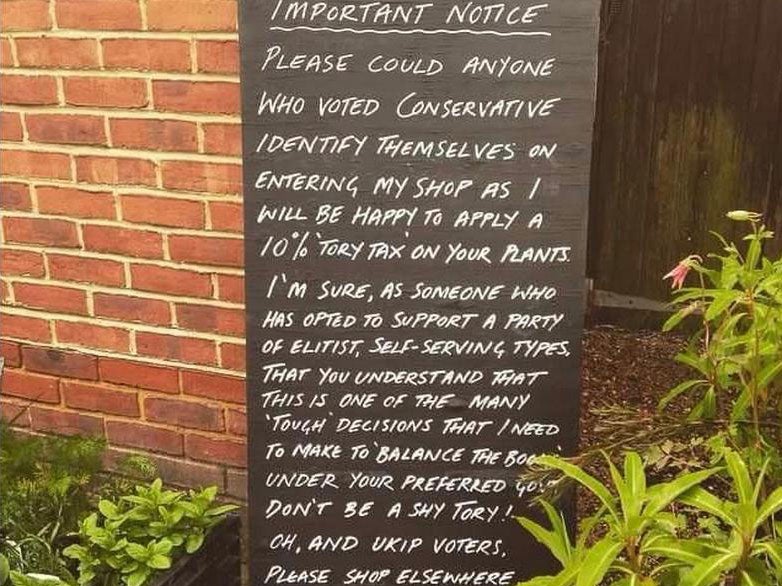 IMPORTANT NOTICE
PLEASE COULD ANYONE
WHO VOTED CONSERVATIVE
IDENTIFY THEMSELVES ON
ENTERING MY SHOP AS I
WILL BE HAPPY TO APPLY A
10% 'TORY TAX' ON YOUR PLANTS.
I'M SURE, AS SOMEONE WHO
HAS OPTED TO SUPPORT A PARTY
OF ELITIST, SELF-SERVING TYPES,
THAT YOU UNDERSTAND THAT
THIS IS ONE OF THE MANY
'TOUGH' DECISIONS THAT I NEED
TO MAKE TO 'BALANCE THE
UNDER YOUR PREFERRED
DON'T BE A SHY TORY!
OH, AND UKIP VOTERS,
PLEASE SHOP ELSEWHERE